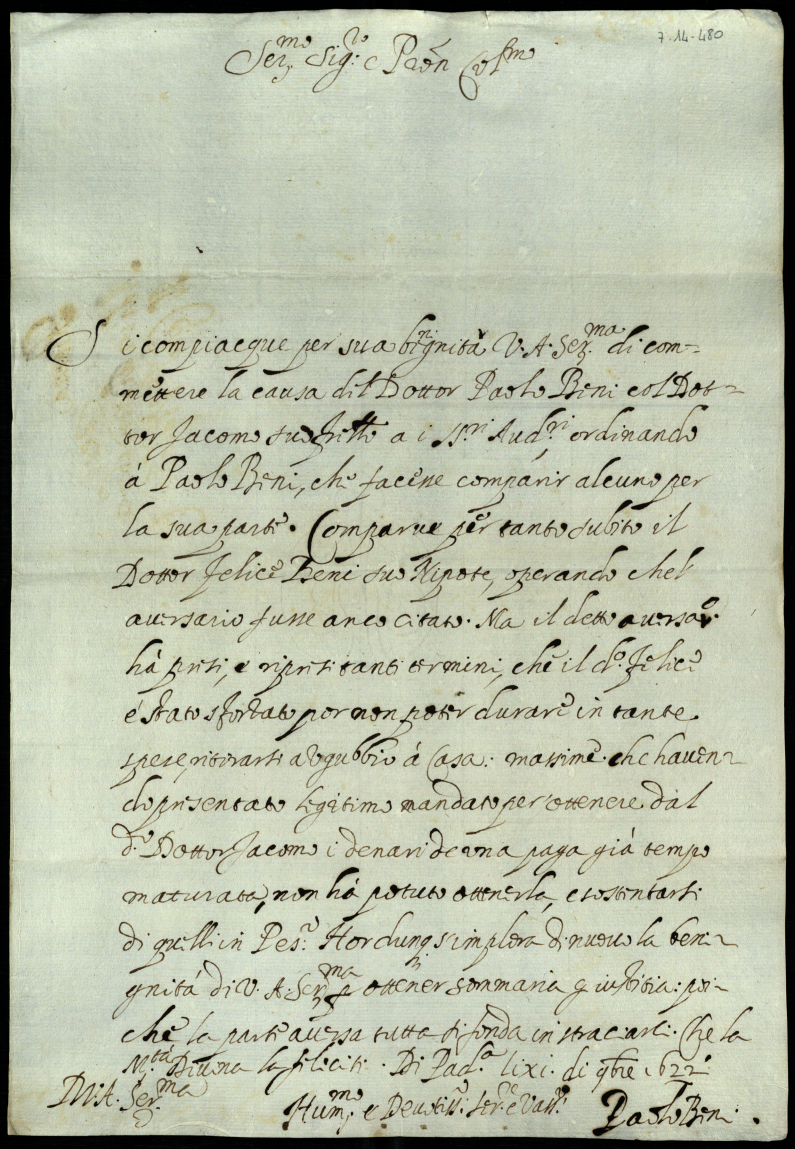 7-14-480
Ser.mo Sig.re e Pron Col.mo
Si compiacque per sua benignità V. A. Ser.ma di com=
mettere la causa del Dottor Paolo Beni col Dot=
tor Jacomo suo frello a i SS.ri Aud.ri ordinando
à Paolo Beni, che facesse comparir alcuno per
la sua parte. Comparue per tanto subito il
Dottor Felice Beni suo Nipote, operando chel
auersario fusse anco citato. Ma il detto auersa.o
hà presi, e ripresi tanti termini, che il d.o Felice
é stato sforzato per non poter durare in tante
spese, ritirarsi a Vgubbio à Casa: massime che hauen=
do presentato legitimo mandato per ottenere dal
d.o Dottor Jacomo i denari de vna paga già tempo
maturata, non hà potuto ottenerla, e sostentarsi
di quelli in Pes.o Hor dunq; s'implora di nuouo la beni=
gnità di V. A. Ser.ma p ottener sommaria giustitia: poi=
che la parte auersa tutta si fonda in stracciarci. Che la
M.tà Diuina la feliciti. Di Pad.a li xi. di 9bre 1622
D.V.A. Ser.ma
Hum.mo e Deuotiss.o Ser.re e Vass.o
Paolo Beni.